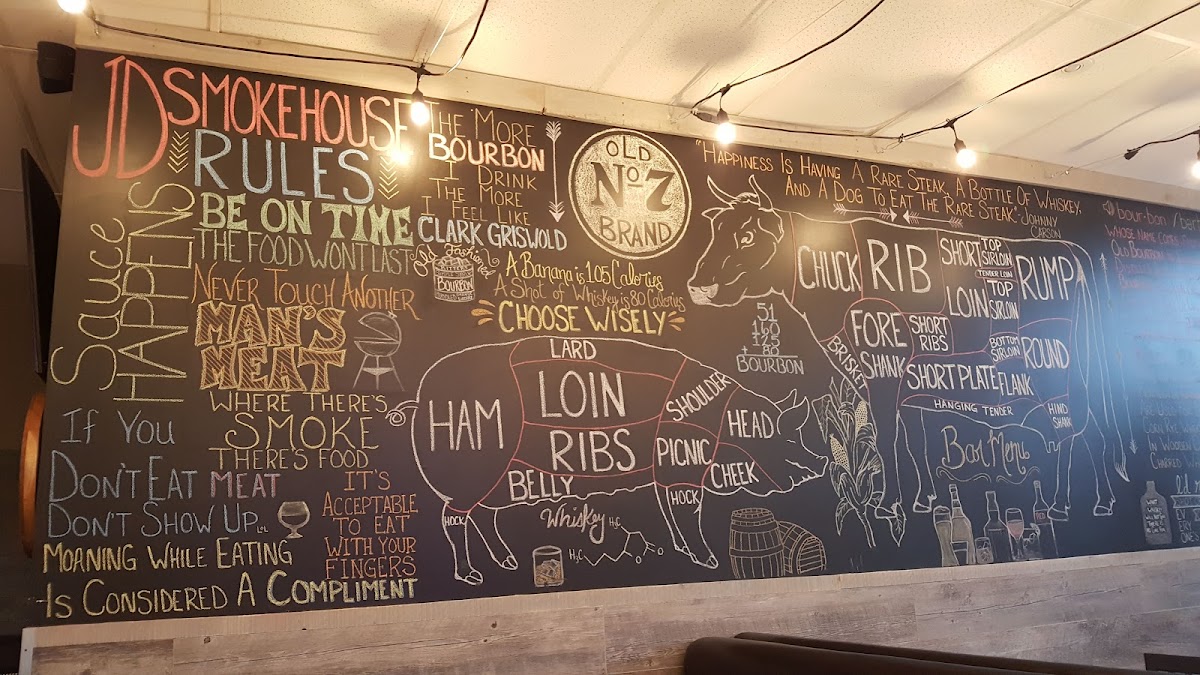 JD SMOKEHOUSE
RULES
BE ON TIME
THE FOOD WONT LAST
Sauce
HAPPENS
NEVER TOUCH ANOTHER
MAN'S
MEAT
WHERE THERE'S
SMOKE
THERE'S FOOD
IF YOU
DON'T EAT MEAT
DON'T SHOW UP
IT'S
ACCEPTABLE
TO EAT
WITH YOUR
FINGERS
MOANING WHILE EATING
IS CONSIDERED A COMPLIMENT
THE MORE
BOURBON
I DRINK
THE MORE
I FEEL LIKE
CLARK GRISWOLD
Old Fashioned
BOURBON
OLD
No 7
BRAND
A BANANA is 105 CALORIES
A SHOT OF WHISKEY is 80 CALORIES
CHOOSE WISELY
"HAPPINESS IS HAVING A RARE STEAK, A BOTTLE OF WHISKEY,
AND A DOG TO EAT THE RARE STEAK." -JOHNNY
CARSON
51
160
125
+ 80
BOURBON
LARD
HAM
LOIN
RIBS
BELLY
SHOULDER
PICNIC
HEAD
CHEEK
HOCK
HOCK
Whiskey
H3C
H3C
O
O
CHUCK
RIB
SHORT
LOIN
TOP
SIRLOIN
TENDER LOIN
TOP
SIRLOIN
BOTTOM
SIRLOIN
RUMP
FORE
SHANK
SHORT
RIBS
BRISKET
SHORT PLATE
FLANK
ROUND
HANGING TENDER
HIND
SHANK
Bar Menu
bour·bon
WHOSE NAME COMES
OLD BOURBON